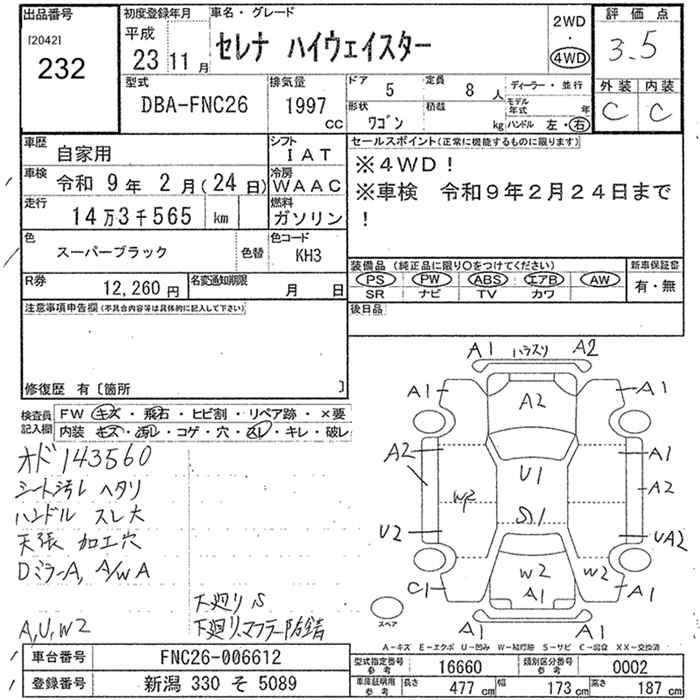 出品番号
[2042]
232
初度登録年月
平成
23 11月
車名・グレード
セレナ ハイウェイスター
2WD
・
4WD
評価点
3.5
外装 内装
C C
型式
DBA-FNC26
排気量
1997
CC
ドア 5
定員 8 人
形状 ワゴン
積載 kg
ディーラー・並行
モデル年式 年
ハンドル 左・右
車歴
自家用
シフト
IAT
車検 令和 9年 2月(24日)
冷房
WAAC
走行
14万3千565 km
燃料
ガソリン
色
スーパーブラック
色替
色コード
KH3
R券
12,260 円
名変通知期限
月 日
セールスポイント(正常に機能するものに限ります)
※4WD!
※車検 令和9年2月24日まで
!
装備品(純正品に限り○をつけてください)
PS PW ABS エアB AW
SR ナビ TV カワ
新車保証書
有・無
後日品
注意事項申告欄(不具合内容等は具体的に記入して下さい)
修復歴 有〔箇所 〕
検査員記入欄
FW キズ・飛石・ヒビ割・リペア跡・×要
内装 キズ・汚レ・コゲ・穴・スレ・キレ・破レ
オド 143560
シート汚レ ヘタリ
ハンドル スレ大
天張 加工穴
Dミラー A, A/W A
下廻り S
下廻り、マフラー防錆
A, U, W2
A1 ハラスリ A2
A1 A1
A2
A2 A1
U1
A2
W2
S1
U2 UA2
W2 W2
C1 A1 A1
A1 A1
スペア
A-キズ E-エクボ U-凹み W-補修跡 S-サビ C-腐食 XX-交換済
車台番号 FNC26-006612
登録番号 新潟 330 そ 5089
型式指定番号 参考 16660
類別区分番号 参考 0002
車庫証明用 参考 長さ 477 cm 幅 173 cm 高さ 187 cm